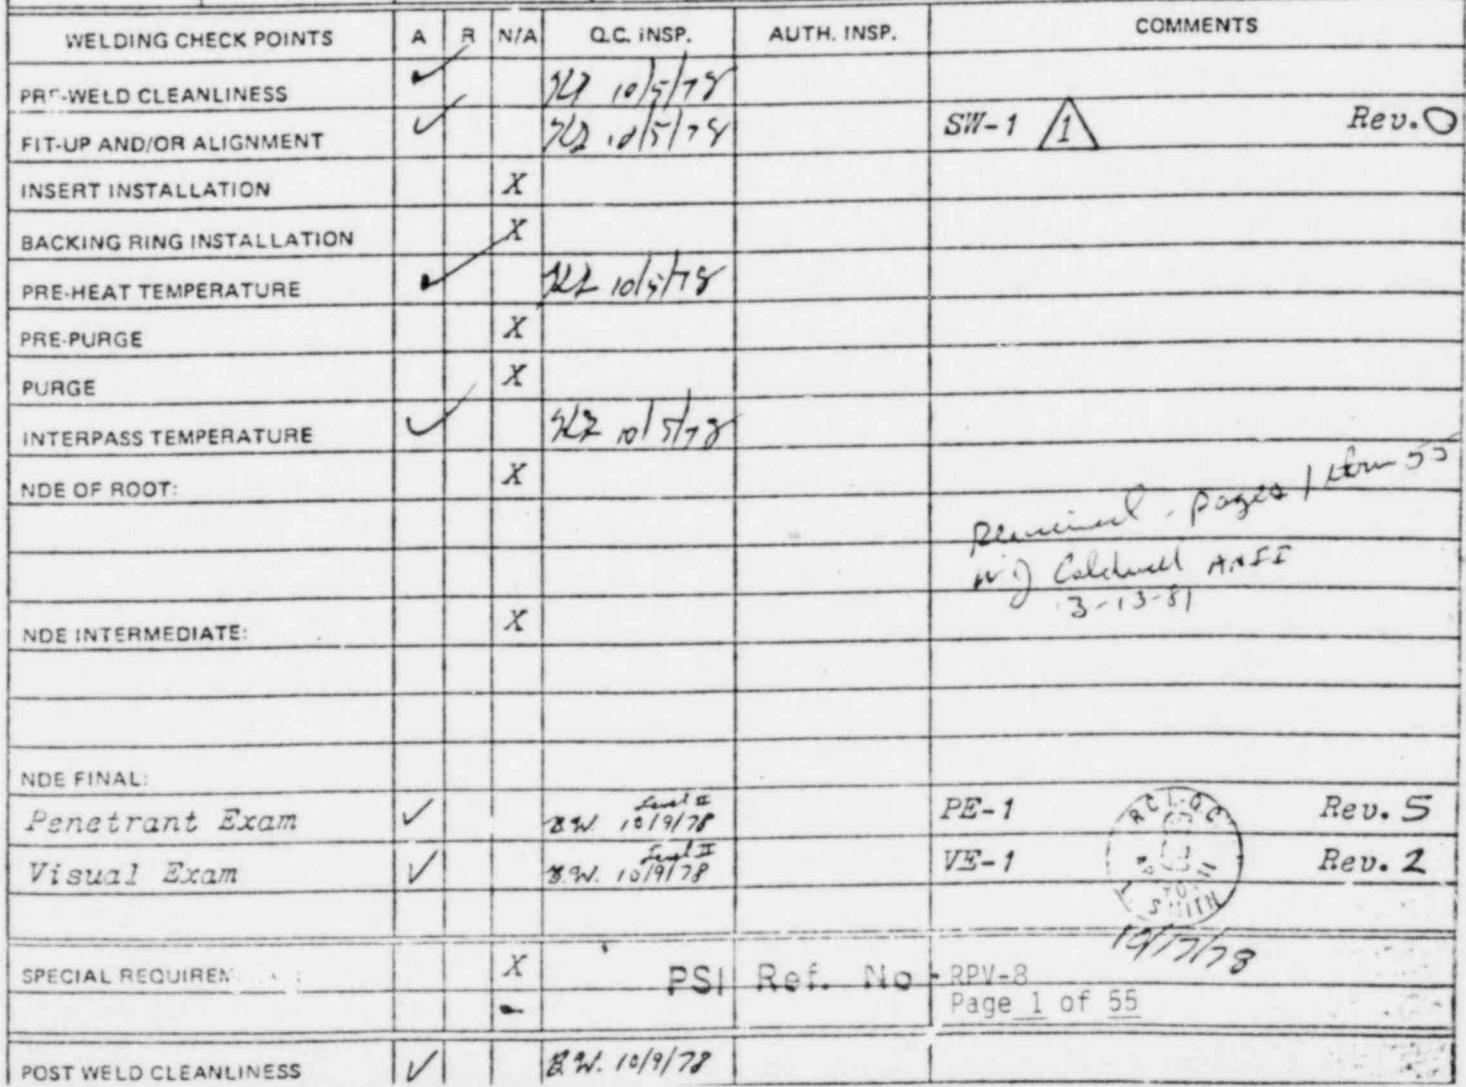 WELDING CHECK POINTS A R N/A Q.C. INSP. AUTH. INSP. COMMENTS
PRE-WELD CLEANLINESS ✓ 10/5/78
FIT-UP AND/OR ALIGNMENT ✓ 10/5/78 SW-1 1 Rev. 0
INSERT INSTALLATION X
BACKING RING INSTALLATION X
PRE-HEAT TEMPERATURE ✓ 10/5/78
PRE-PURGE X
PURGE X
INTERPASS TEMPERATURE ✓ 10/5/78
NDE OF ROOT: X
pages 1 thru 55
W J Caldwell ANII
3-13-81
NDE INTERMEDIATE: X
NDE FINAL:
Level II
Penetrant Exam ✓ B.W. 10/9/78 PE-1 Rev. 5
Level II
Visual Exam ✓ B.W. 10/9/78 VE-1 Rev. 2
RCI-QC
SMITH
10/17/78
SPECIAL X
PSI Ref. No - RPV-8
Page 1 of 55
POST WELD CLEANLINESS ✓ B.W. 10/9/78